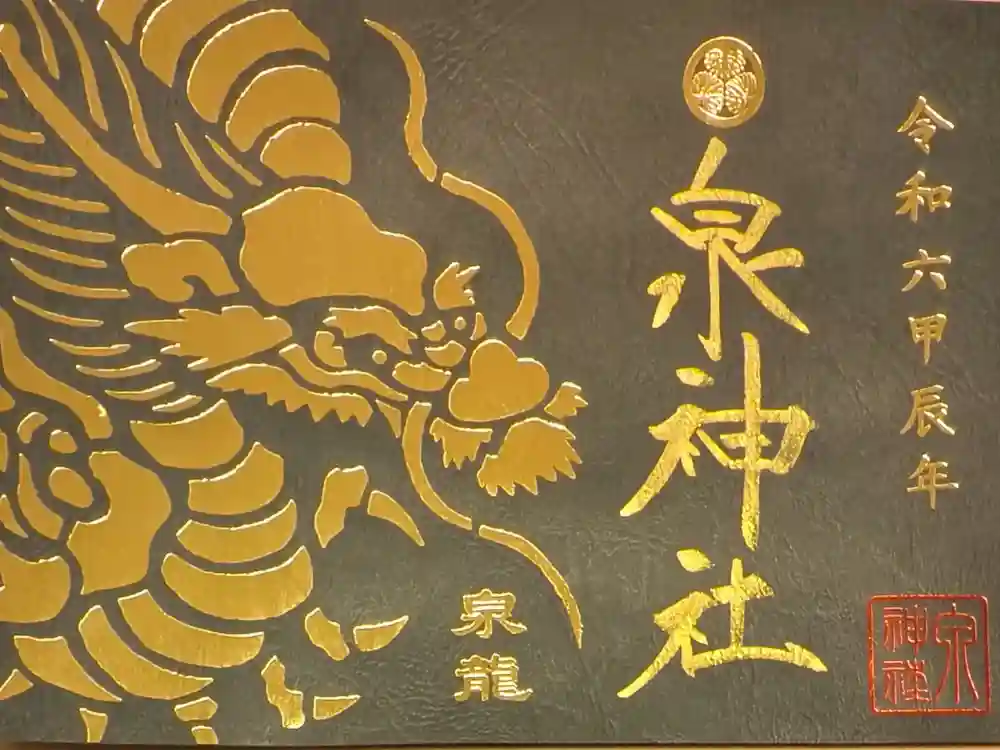 令和六甲辰年
泉神社
泉龍
泉
神社